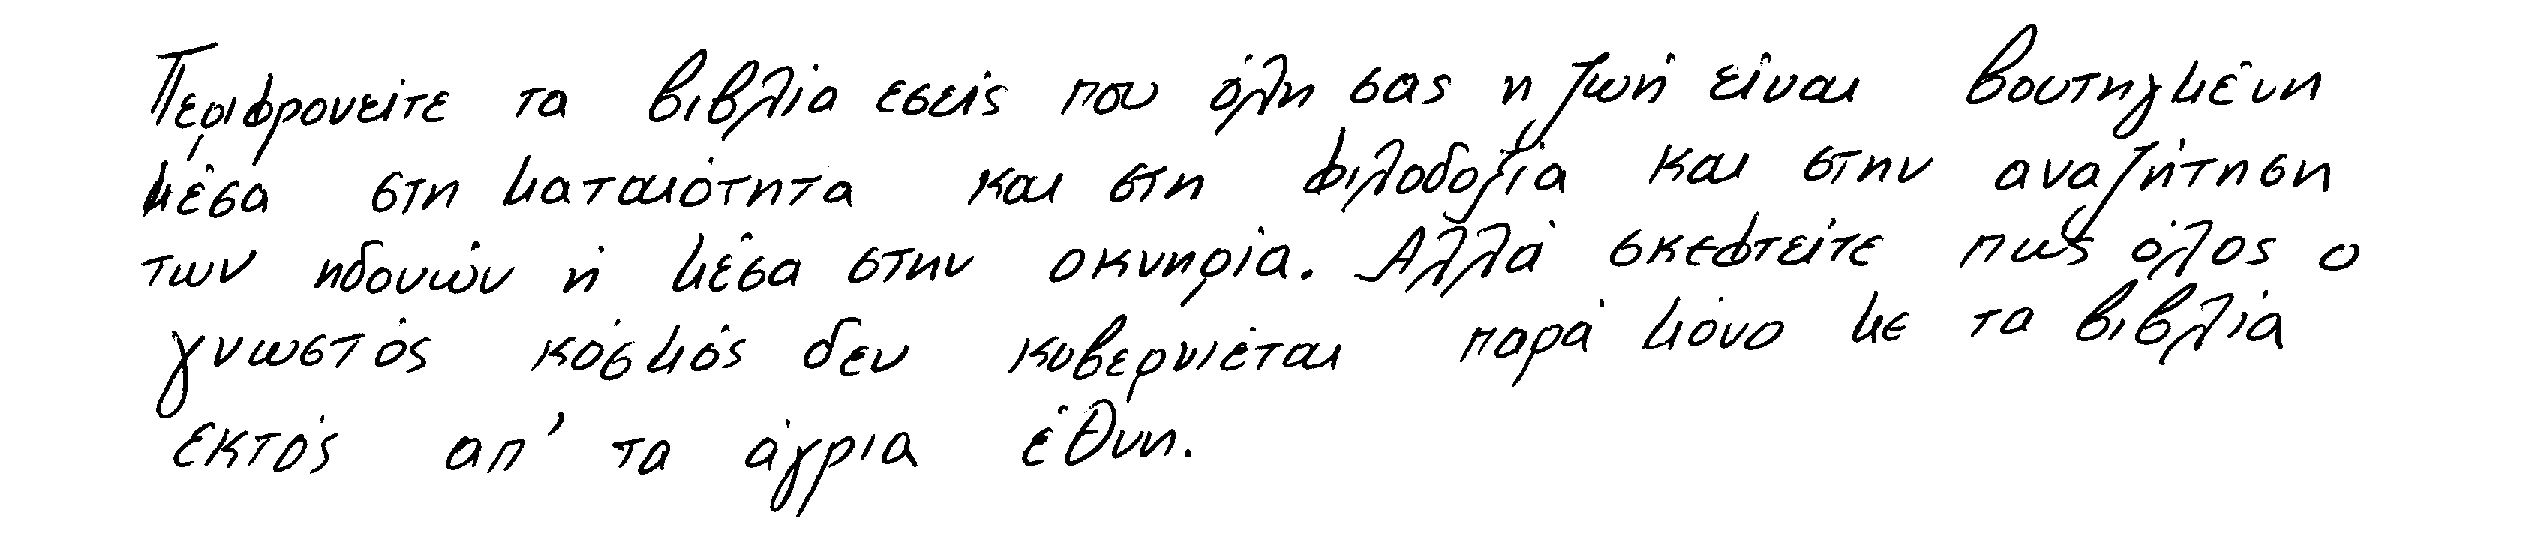 Περιφρονείτε τα βιβλία εσείς που όλη σας η ζωή είναι βουτηγμένη
μέσα στη ματαιότητα και στη φιλοδοξία και στην αναζήτηση
των ηδονών ή μέσα στην οκνηρία. Αλλά σκεφτείτε πως όλος ο
γνωστός κόσμός δεν κυβερνιέται παρά μόνο με τα βιβλία
εκτός απ' τα άγρια έθνη.